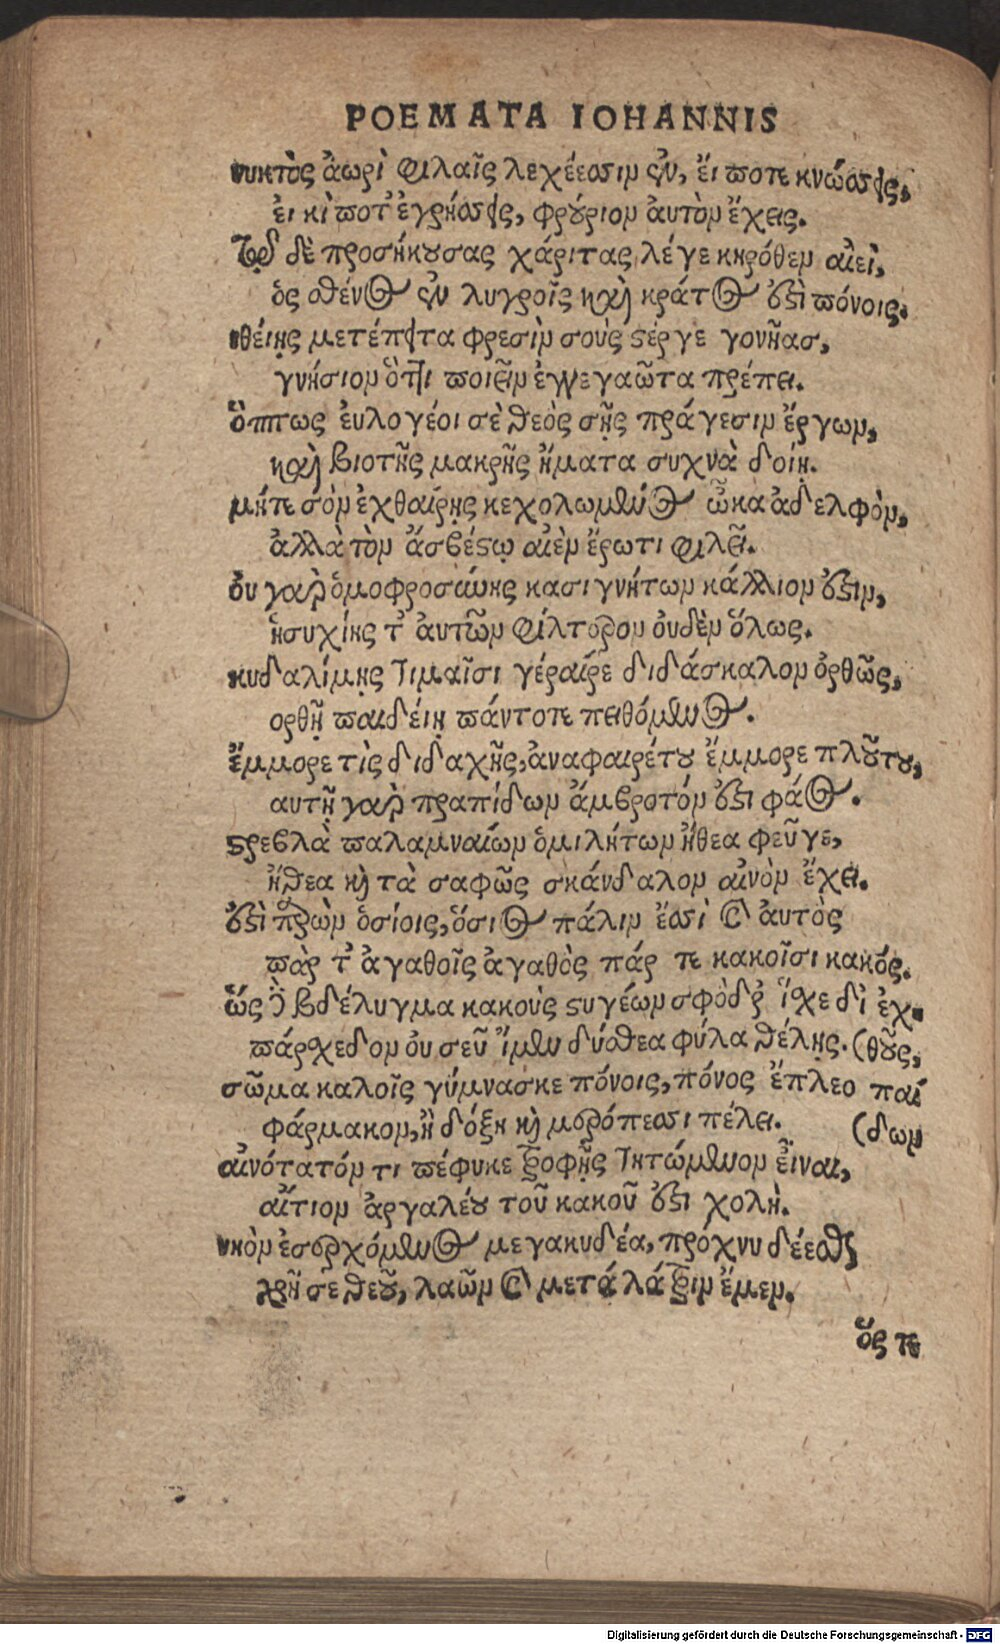 POEMATA IOHANNIS
νυκτὸς ἀωρὶ φιλαῖς λεχέεσσιν σὺν, ἔι ποτε κνώσσῃς,
ἐι κὶ ποτ' ἐγρήσσῃς, φρούριον ἀυτὸν ἔχεις.
τῷ δὲ προσήκουσας χάριτας λέγε κηρόθεν αἰεὶ,
ὃς σθένος σὺν λυγροῖς καὶ κράτος ἐστὶ πόνοις.
θείης μετέπειτα φρεσὶν σοὺς στέργε γονῆας,
γνήσιον ὅττι ποιεῖν ἐγγεγαῶτα πρέπει.
ὅππως ἐυλογέοι σὲ θεὸς σῇς πράγεσιν ἔργων,
καὶ βιοτῆς μακρῆς ἤματα συχνὰ δοίη.
μήτε σὸν ἐχθαίρῃς κεχολωμένος ὦκα ἀδελφὸν,
ἀλλὰ τὸν ἀσβέστῳ αἰὲν ἔρωτι φιλεῖ.
ὀυ γαρ ὁμοφροσύνης κασιγνήτων κάλλιον ἐστιν,
ἡσυχίης τ' ἀυτῶν φίλτερον ὀυδὲν ὅλως.
κυδαλίμῃς τιμαῖσι γέραιρε διδάσκαλον ὀρθῶς,
ορθῇ παιδείῃ πάντοτε πειθόμενος.
ἔμμορε τὶς διδαχῆς, ἀναφαιρέτου ἔμμορε πλούτου,
αυτῇ γαρ πραπίδων ἄμβροτόν ἐστι φάος.
στρεβλὰ παλαμναίων ὁμιλήτων ἤθεα φεῦγε,
ἤθεα καὶ τὰ σαφῶς σκάνδαλον αἰνὸν ἔχει.
ἐστὶ παρὼν ὁσίοις, ὅσιος πάλιν ἔσσὶ καὶ ἀυτὸς
πὰρ τ' ἀγαθοῖς ἀγαθὸς πάρ τε κακοῖσι κακός.
ὥς βδέλυγμα κακοὺς στυγέων σφόδρ' ἴσχε δὶ ἐχ-
πάρσχεδον ὀυ σεῦ ἴμεν δύσθεα φύλα θέλῃς. (θοὺς,
σῶμα καλοῖς γύμνασκε πόνοις, πόνος ἔπλεο παί
φάρμακον, ἢ δόξη καὶ μερόπεσσι πέλει. (δων
αἰνότατόν τι πέφυκε τροφῇς τητώμενον εἶναι,
αἴτιον ἀργαλέου τοῦ κακοῦ ἐστι χολή.
νηὸν ἐσερχόμενος μεγακυδέα, πρόχνυ δέεσθαι
χρή σε θεοῦ, λαῶν καὶ μετά λάτριν ἔμεν.
ὅς τε